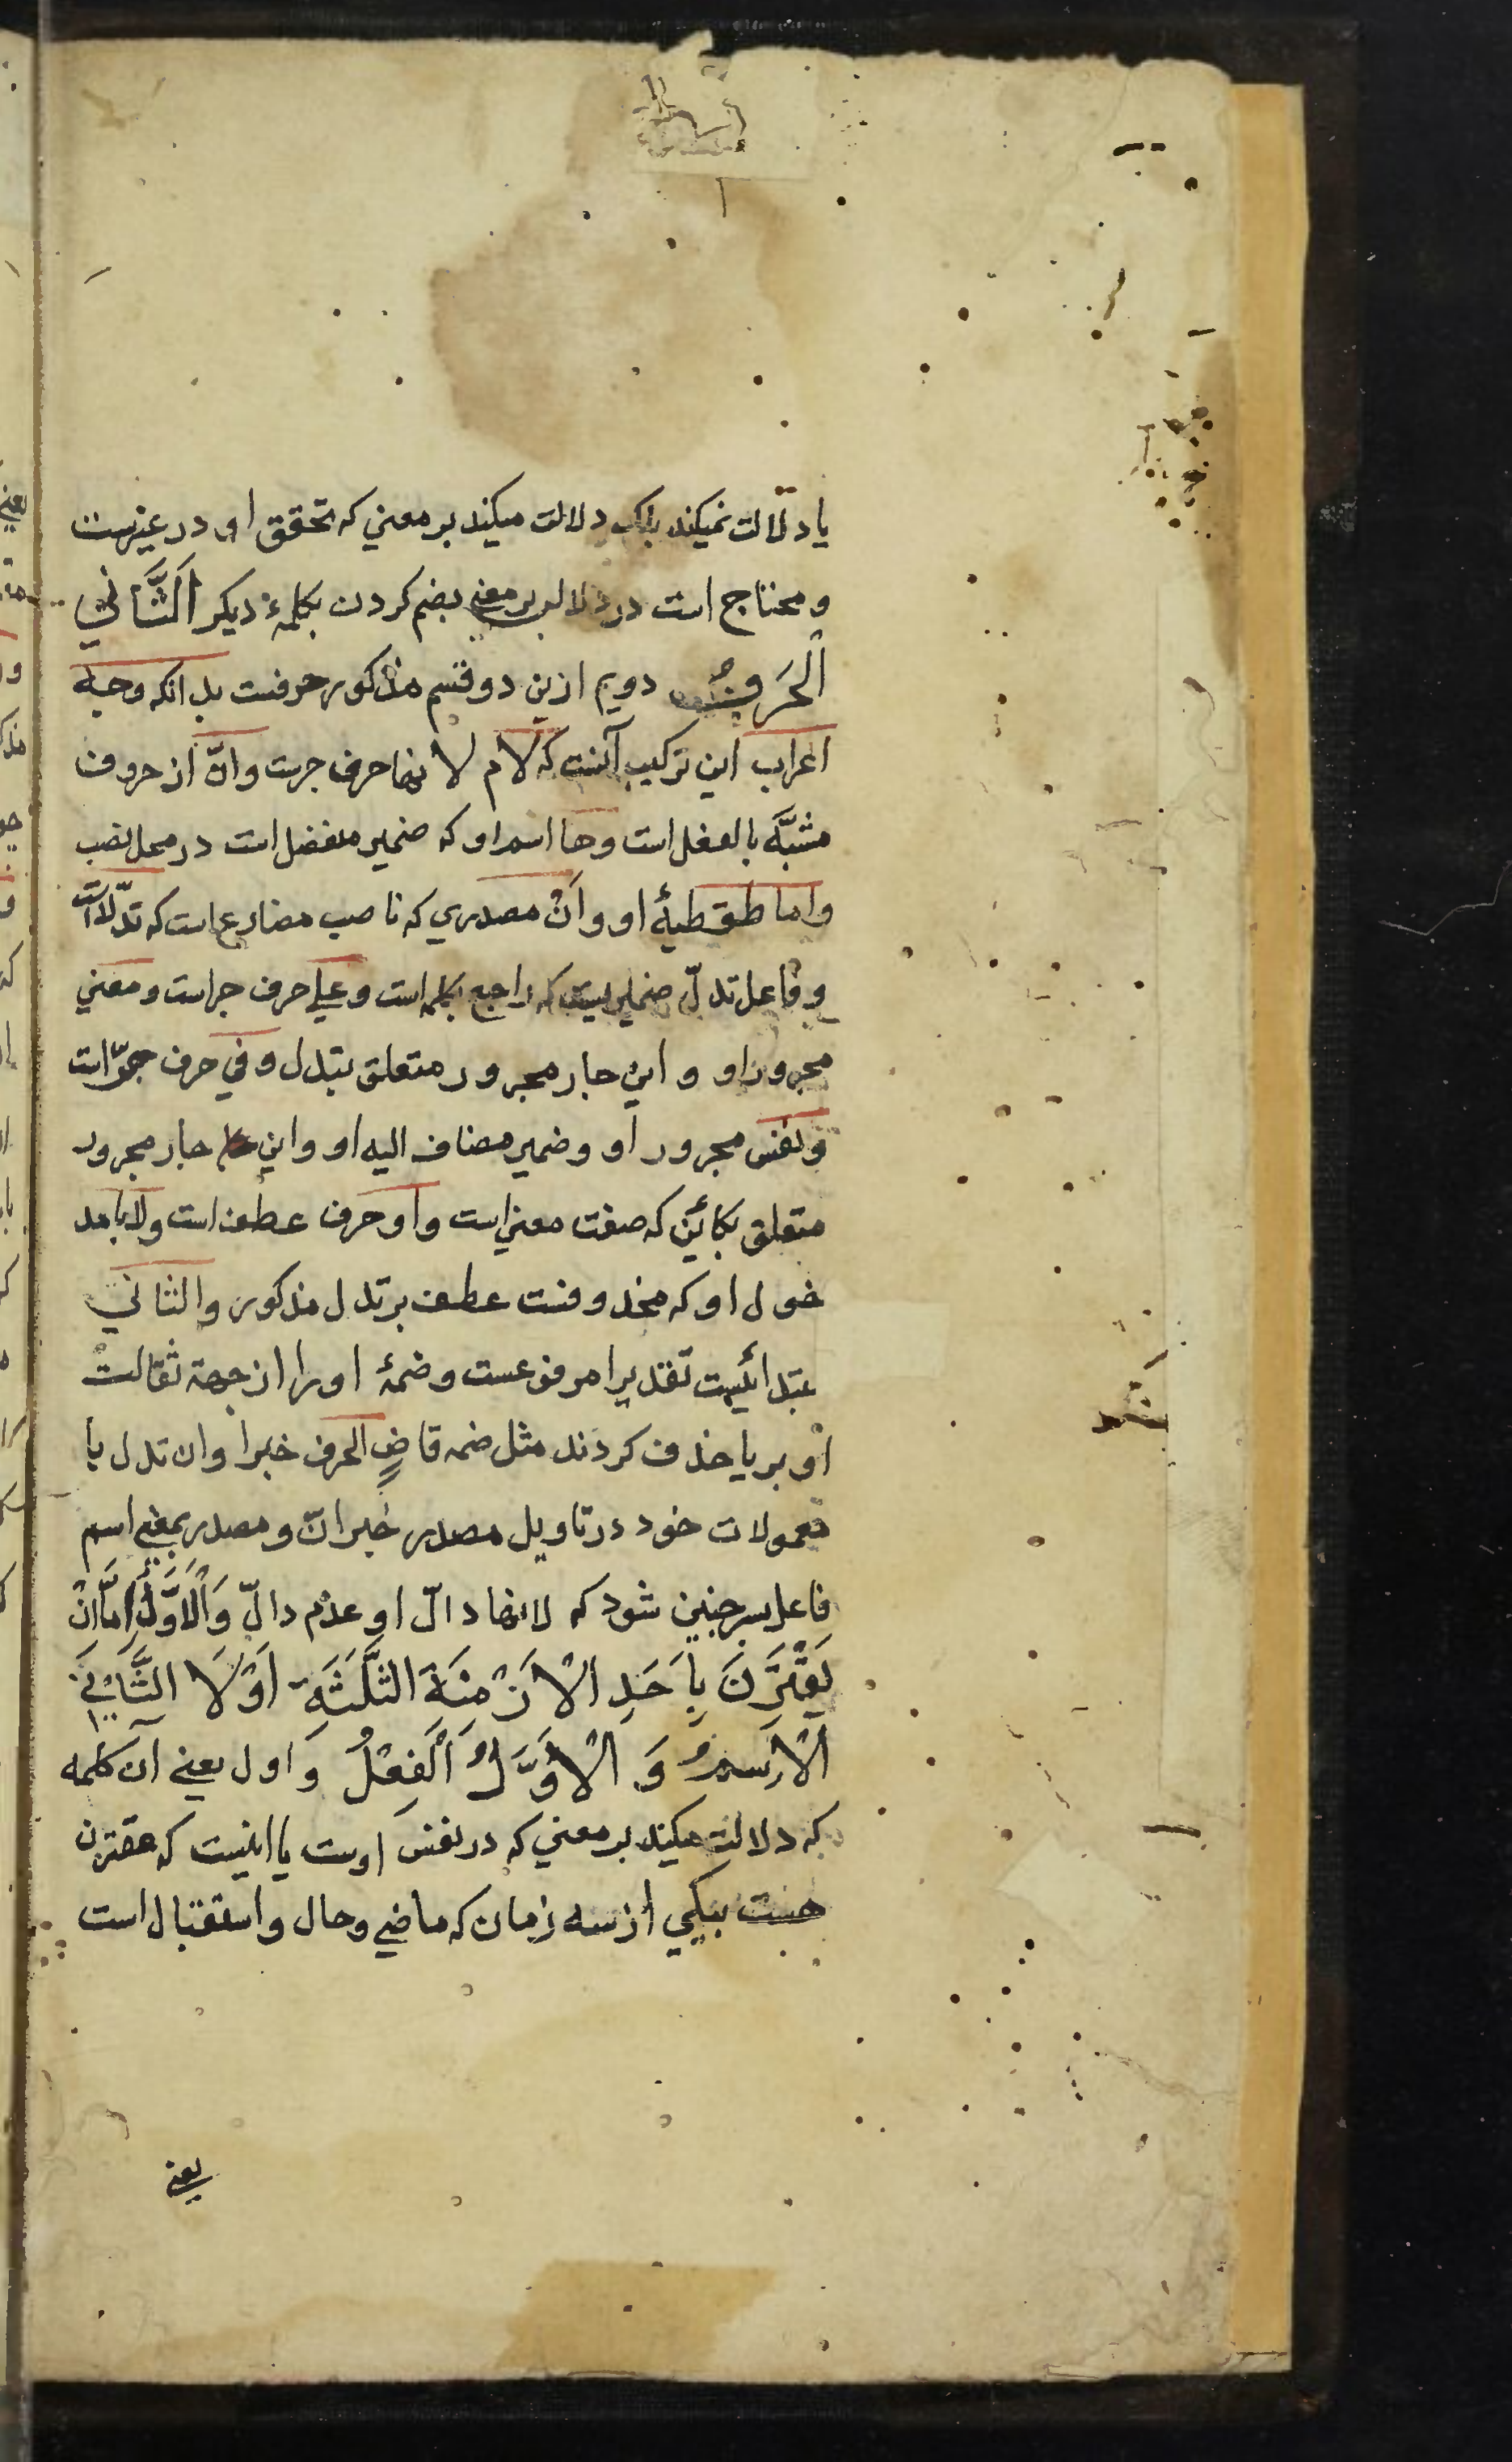 یا دلالت نمیکند بلک دلالت میکند بر معنی که تحقق او در غیرست
و محتاج است در دلالو بر معنی بضم کردن بکلمهٔ دیگر اَلثَّانِي
اَلْحَرفُ دویم ازین دو قسم مذکور حرفست بدانکه وجه
اعراب این ترکیب آنست که لام لانها حرف جرست وانّ از حروف
مشبَّه بالفعل است وها اسم او که ضمیر منفصل است در محل نصب
واما طقطیهٔ او وأنْ مصدری که ناصب مضارع است که تدلّ است
و فاعل تدلّ ضمیریست که راجع بکلمه است و علی حرف جر است و معنی
مجرور او و این جار مجرور متعلق بتدل و فی حرف جرّ است
و نفس مجرور او و ضمیر مضاف الیه او و این جار مجرور
متعلق بکائنٍ که صفت معنی است و او حرف عطف است و لا بامد
خول او که محذوفست عطف بر تدل مذکور و الثانی
مبتدائیست تقدیرا مرفوعست و ضمهٔ او را از جهة ثقالت
او بر یا حذف کردند مثل ضمه قاضٍ الحرف خبر او ان تدل با
معمولات خود در تاویل مصدر خبر انّ و مصدر بمعنی اسم
فاعل پس چنین شود که لانها دالّ او عدم دالّ وَاْلاَوَّلُ اِمَّا اَنْ
يَقْتَرِنَ بِاَحَدِ اْلاَزْمِنَةِ الثَّلٰثَةِ اَوْ لاَ الثَّانِي
اْلاِسمُ وَ اْلاَوَّلُ اَلْفِعْلُ و اول یعنی آن کلمه
که دلالت میکند بر معنی که در نفس اوست یا اینست که مقترن
هست بیکی از سه زمان که ماضی و حال و استقبال است
یعنی